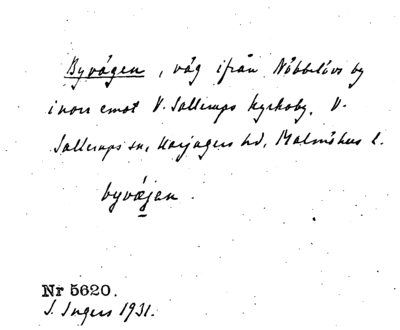 Byvägen, väg ifrån Nöbbelövs by
inors emot V. Sallerups kyrkoby, V.
Sallerups sn, Harjagers hd, Malmöhus l.
byvæjan.
Nr 5620.
I. Ingers 1931.